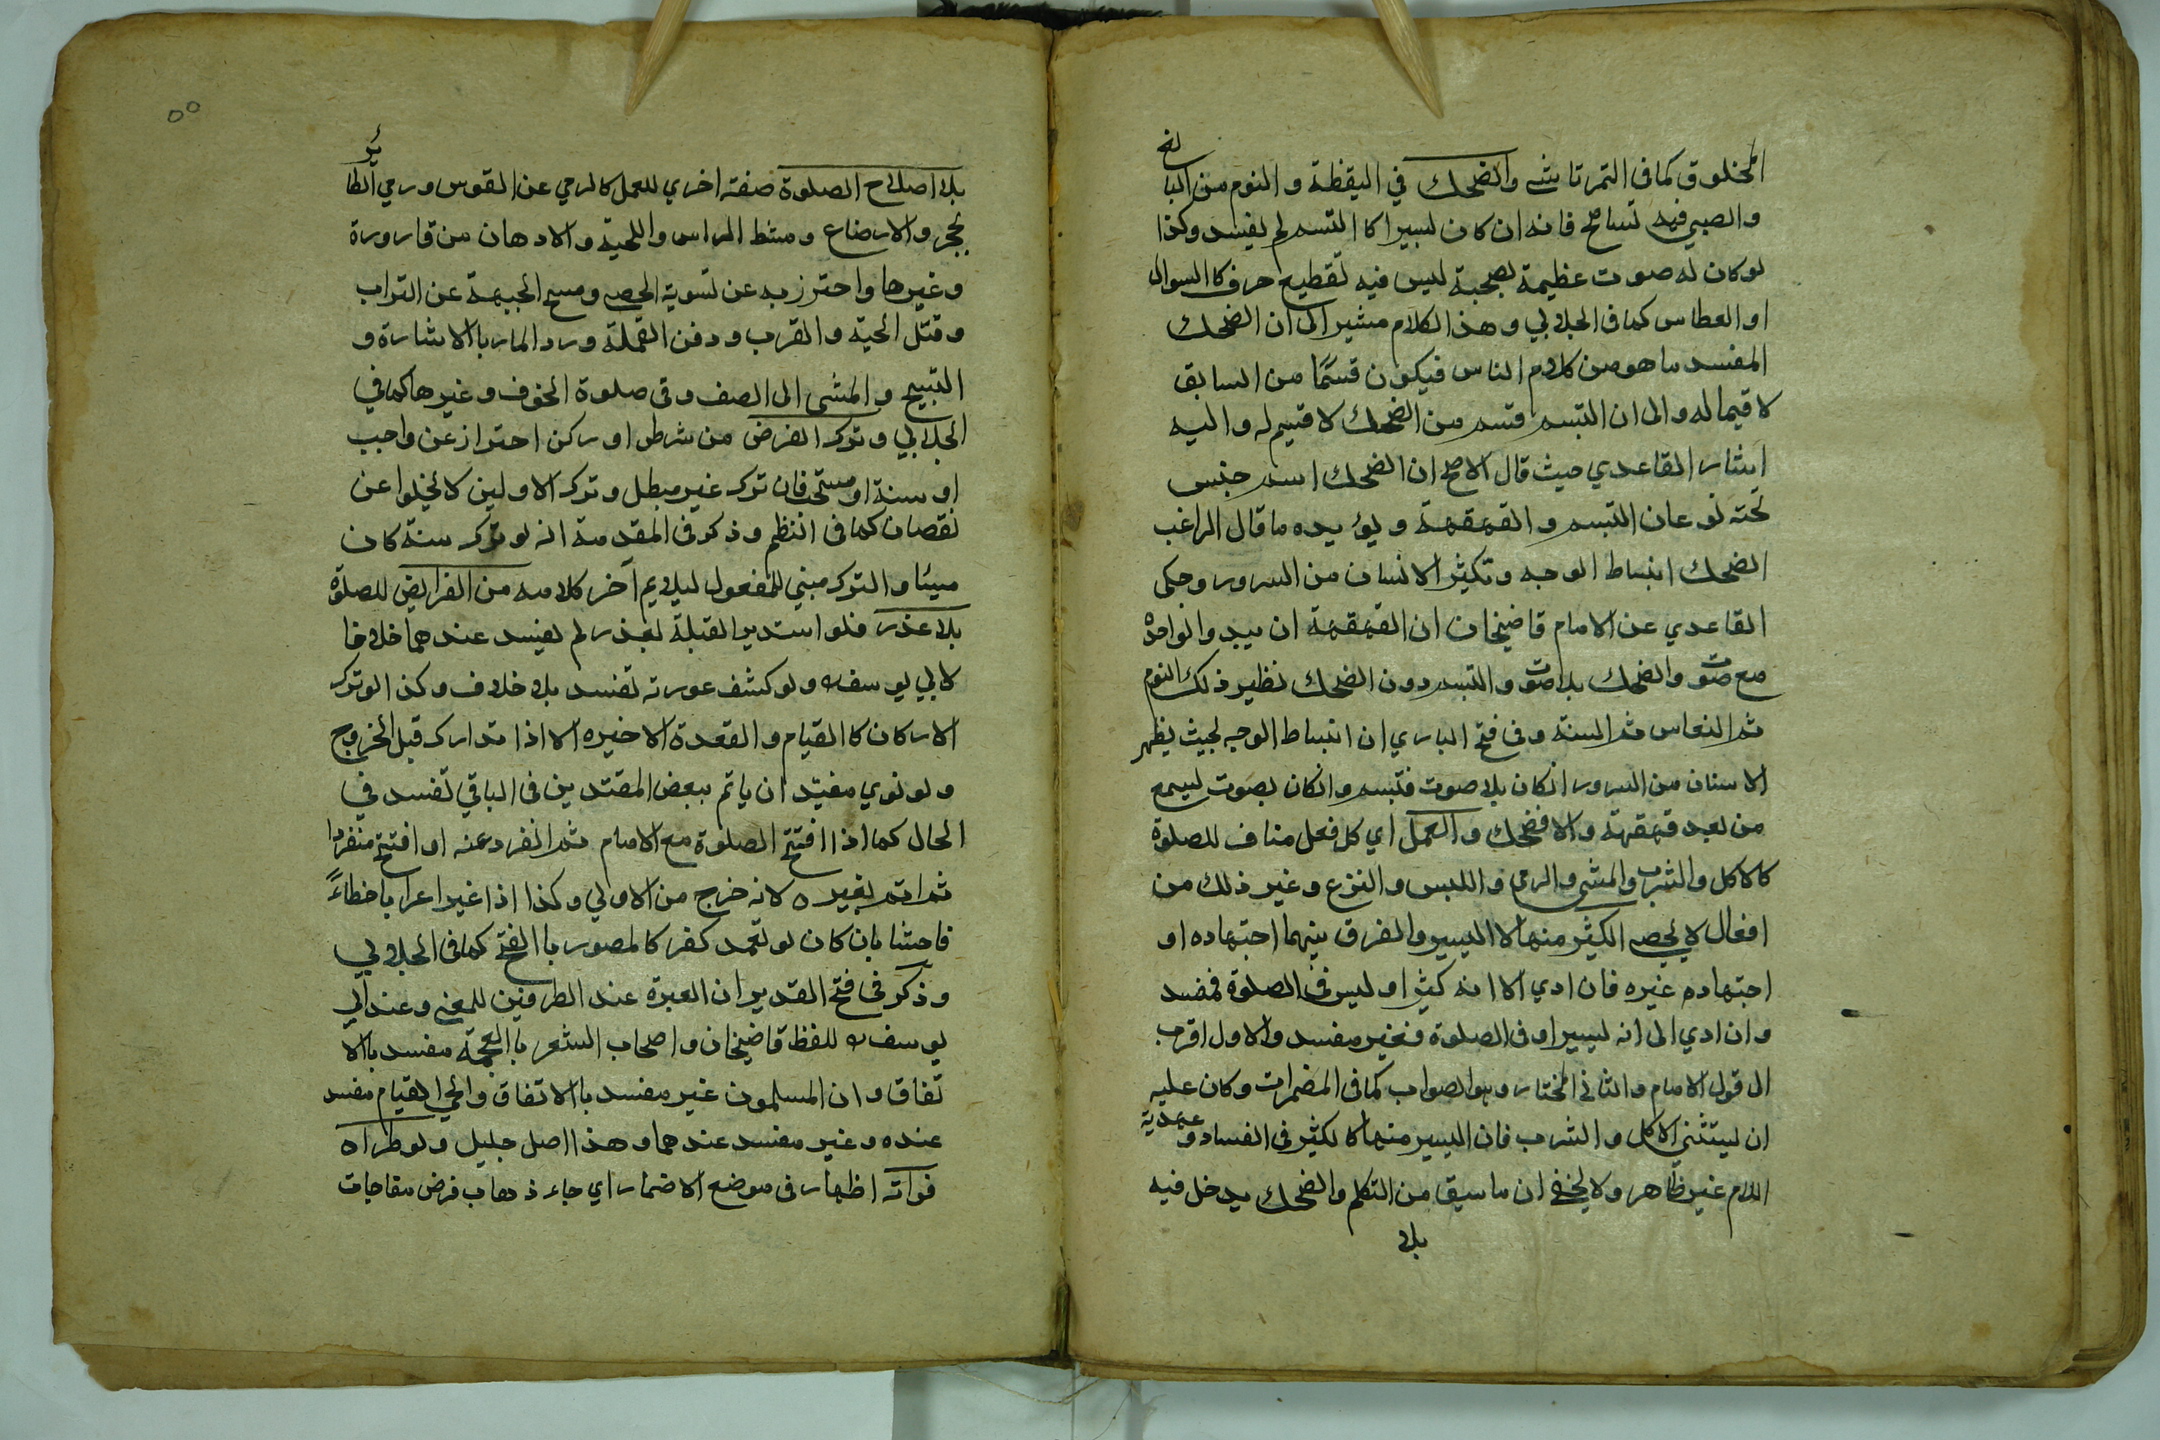 المخلوق كما فى التمرتاشي والضحك في اليقظة والنوم من البالغ
والصبي فيه تسامح فانه ان كان يسيرا كا التبسم لم يفسد وكذا
لو كان له صوت عظيمة ليس فيه تقطيع حرف كا السوال
او العطاس كما فى الجلابي وهذا الكلام مشيرا الى ان الضحك
المفسد ما هو من كلام الناس فيكون قسمًا من السابق
لا قيما له والى ان التبسم قسم من الضحك لا قسيم له واليه
اشار القاعدي حيث قال الاصح ان الضحك اسم جنس
تحته نوعان التبسم والقهقهة ويؤيده ما قال الراغب
الضحك انبساط الوجه وتكثير الانسان من السرور وحكى
القاعدي عن الامام قاضيخان ان القهقهة ان يبدو النواجذه
مع صوت والضحك بلا صوت والتبسم دون الضحك نظير ذلك النوم
ثم النعاس ثم السنة وفى فتح الباري ان انبساط الوجه بحيث يظهر
الاسنان من السرور ان كان بلا صوت فتبسم وانكان بصوت يسمع
من بعد قهقهة والا فضحك والعمل اي كل فعل مناف للصلوة
كالاكل والشرب والمشي والرمي واللبس والنزع وغير ذلك من
افعال لا يحصى الكثير منها لا اليسير والفرق بينهما اجتهاده او
اجتهاده غيره فان ادي الا انه كثير او ليس فى الصلوة فمفسد
وان ادي الى انه ليسير او فى الصلوة فغير مفسد والاول اقرب
الى قول الامام والثانى المختار وهو الصواب كما فى المضمرات وكان عليه
ان يستثنى الاكل والشرب فان اليسير منها كا لكثير فى الفساد وعهدية
اللام غير ظاهر ولا يخفى ان ما سبق من التكلم والضحك يدخل فيه
بلا
بلا اصلاح الصلوة صفة اخري للعمل كالرمي عن القوس ورمي الطائر
بحجر والارضاع ومشط الراس واللحية والادهان من قارورة
وغيرها واحترز به عن تسوية الحصى ومسح الجبهة عن التراب
وقتل الحية والقرب ودفن القملة ورد المار با الاشارة و
التبيح والمشى الى الصف وفى صلوة الخوف وغيرها كما في
الجلابي وترك الفرض من شرط او ركن احتراز عن واجب
او سنة او مستحب فان ترك غير مبطل وترك الاولين لا يخلوا عن
نقصان كما فى النظم وذكر فى المقدمة انه لو ترك سنة كان
مسيئا والترك مبني للمفعول ليلايم آخر كلامه من الفرايض للصلوة
بلا عذر فلو استدبر القبلة بعذر لم يفسد عندهما خلافا
لابي يوسف ولو كشف عورته تفسد بلا خلاف وكذا لو ترك
الاركان كا القيام والقعدة الاخيره الا اذا تدارك قبل الخروج
ولو نوي مفيد ان ياتم ببعض المقتدين فى الباقي تفسد في
الحال كما اذا افتتح الصلوة مع الامام ثم انفرد عنه او افتتح منفردا
ثم اتم بغيره لانه خرج من الاولي وكذا اذا غير اعرابا خطاءً
فاحشا بان كان لو تعمد كفر كالمصور با الفتح كما فى الجلابي
وذكر فى فتح القدير ان العبرة عند الطرفين للمعنى وعند ابي
يوسف للفظ قاضيخان واصحاب الشعر با العجمة مفسد بالا
تفاق وان المسلمون غير مفسد با الاتفاق والحي القيام مفسد
عنده وغير مفسد عندهما وهذا اصل جليل ولو طرأه
فراته اظهار فى موضع الاضمار اي جاء ذهاب فرض مفاجات